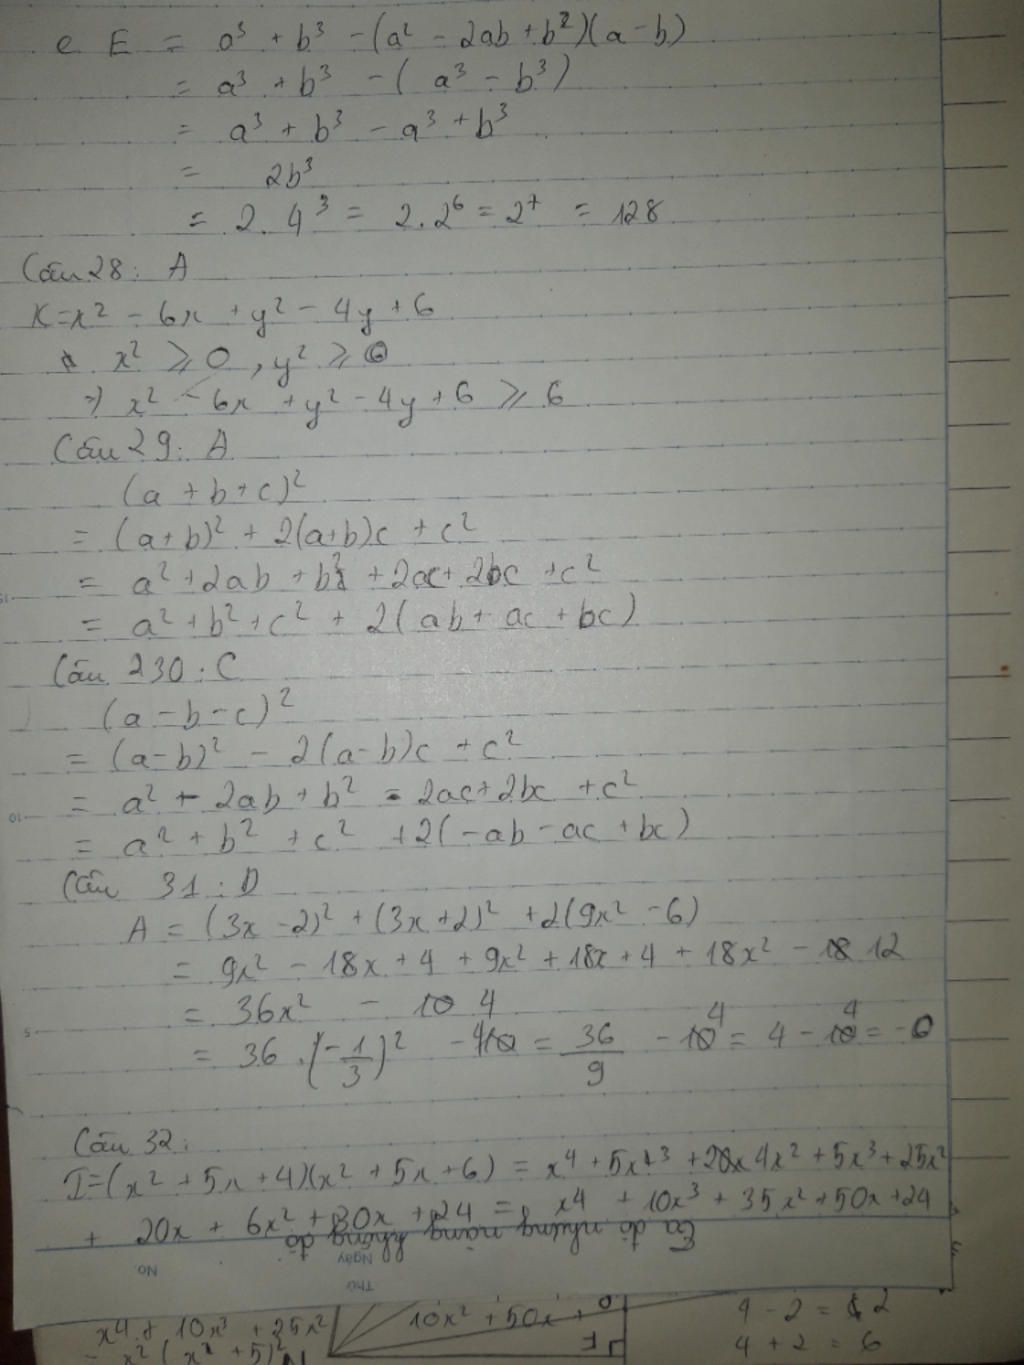 e E = a³ + b³ - (a² - 2ab + b²)(a - b)
= a³ + b³ - (a³ - b³)
= a³ + b³ - a³ + b³
= 2b³
= 2.4³ = 2.2⁶ = 2⁷ = 128
Câu 28: A
K = x² - 6x + y² - 4y + 6
x² ⩾ 0, y² ⩾ 0
⇒ x² - 6x + y² - 4y + 6 ⩾ 6
Câu 29: A
(a + b + c)²
= (a+b)² + 2(a+b)c + c²
= a² + 2ab + b² + 2ac + 2bc + c²
= a² + b² + c² + 2(ab + ac + bc)
Câu 230: C
(a - b - c)²
= (a-b)² - 2(a-b)c + c²
= a² - 2ab + b² - 2ac + 2bc + c²
= a² + b² + c² + 2(-ab - ac + bc)
Câu 31: D
A = (3x - 2)² + (3x + 2)² + 2(9x² - 6)
= 9x² - 18x + 4 + 9x² + 18x + 4 + 18x² - 12
= 36x² - 4
= 36.(-1/3)² - 4 = 36/9 - 4 = 4 - 4 = 0
Câu 32:
I = (x² + 5x + 4)(x² + 5x + 6) = x⁴ + 5x³ + 4x² + 5x³ + 25x²
+ 20x + 6x² + 30x + 24 = x⁴ + 10x³ + 35x² + 50x + 24
Ca đó những nàng không đó
Ngày
No.
Thứ
x⁴ + 10x³ + 25x²
10x² + 50x +
4 - 2 = 2
= x²(x² + 5)²
F
4 + 2 = 6